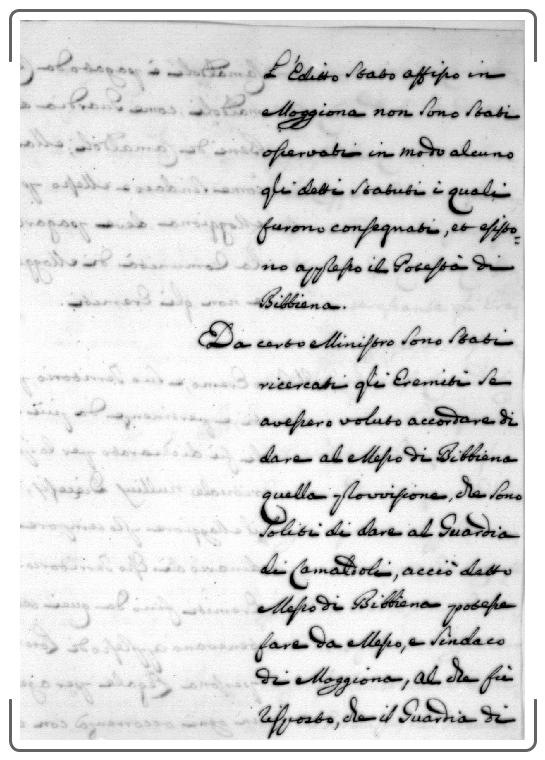 L'Editto stato affisso in
Moggiona non sono stati
osservati in modo alcuno
gli detti statuti i quali
furono consegnati, et esisto=
no appresso il Potestà di
Bibbiena.
Da certo Ministro sono stati
ricercati gli Eremiti se
avessero voluto accordare di
dare al Messo di Bibbiena
quella provvisione, che sono
soliti di dare al Guardia
di Camaldoli, acciò detto
Messo di Bibbiena potesse
fare da Messo, e Sindaco
di Moggiona, al che fù
risposto, che il Guardia di